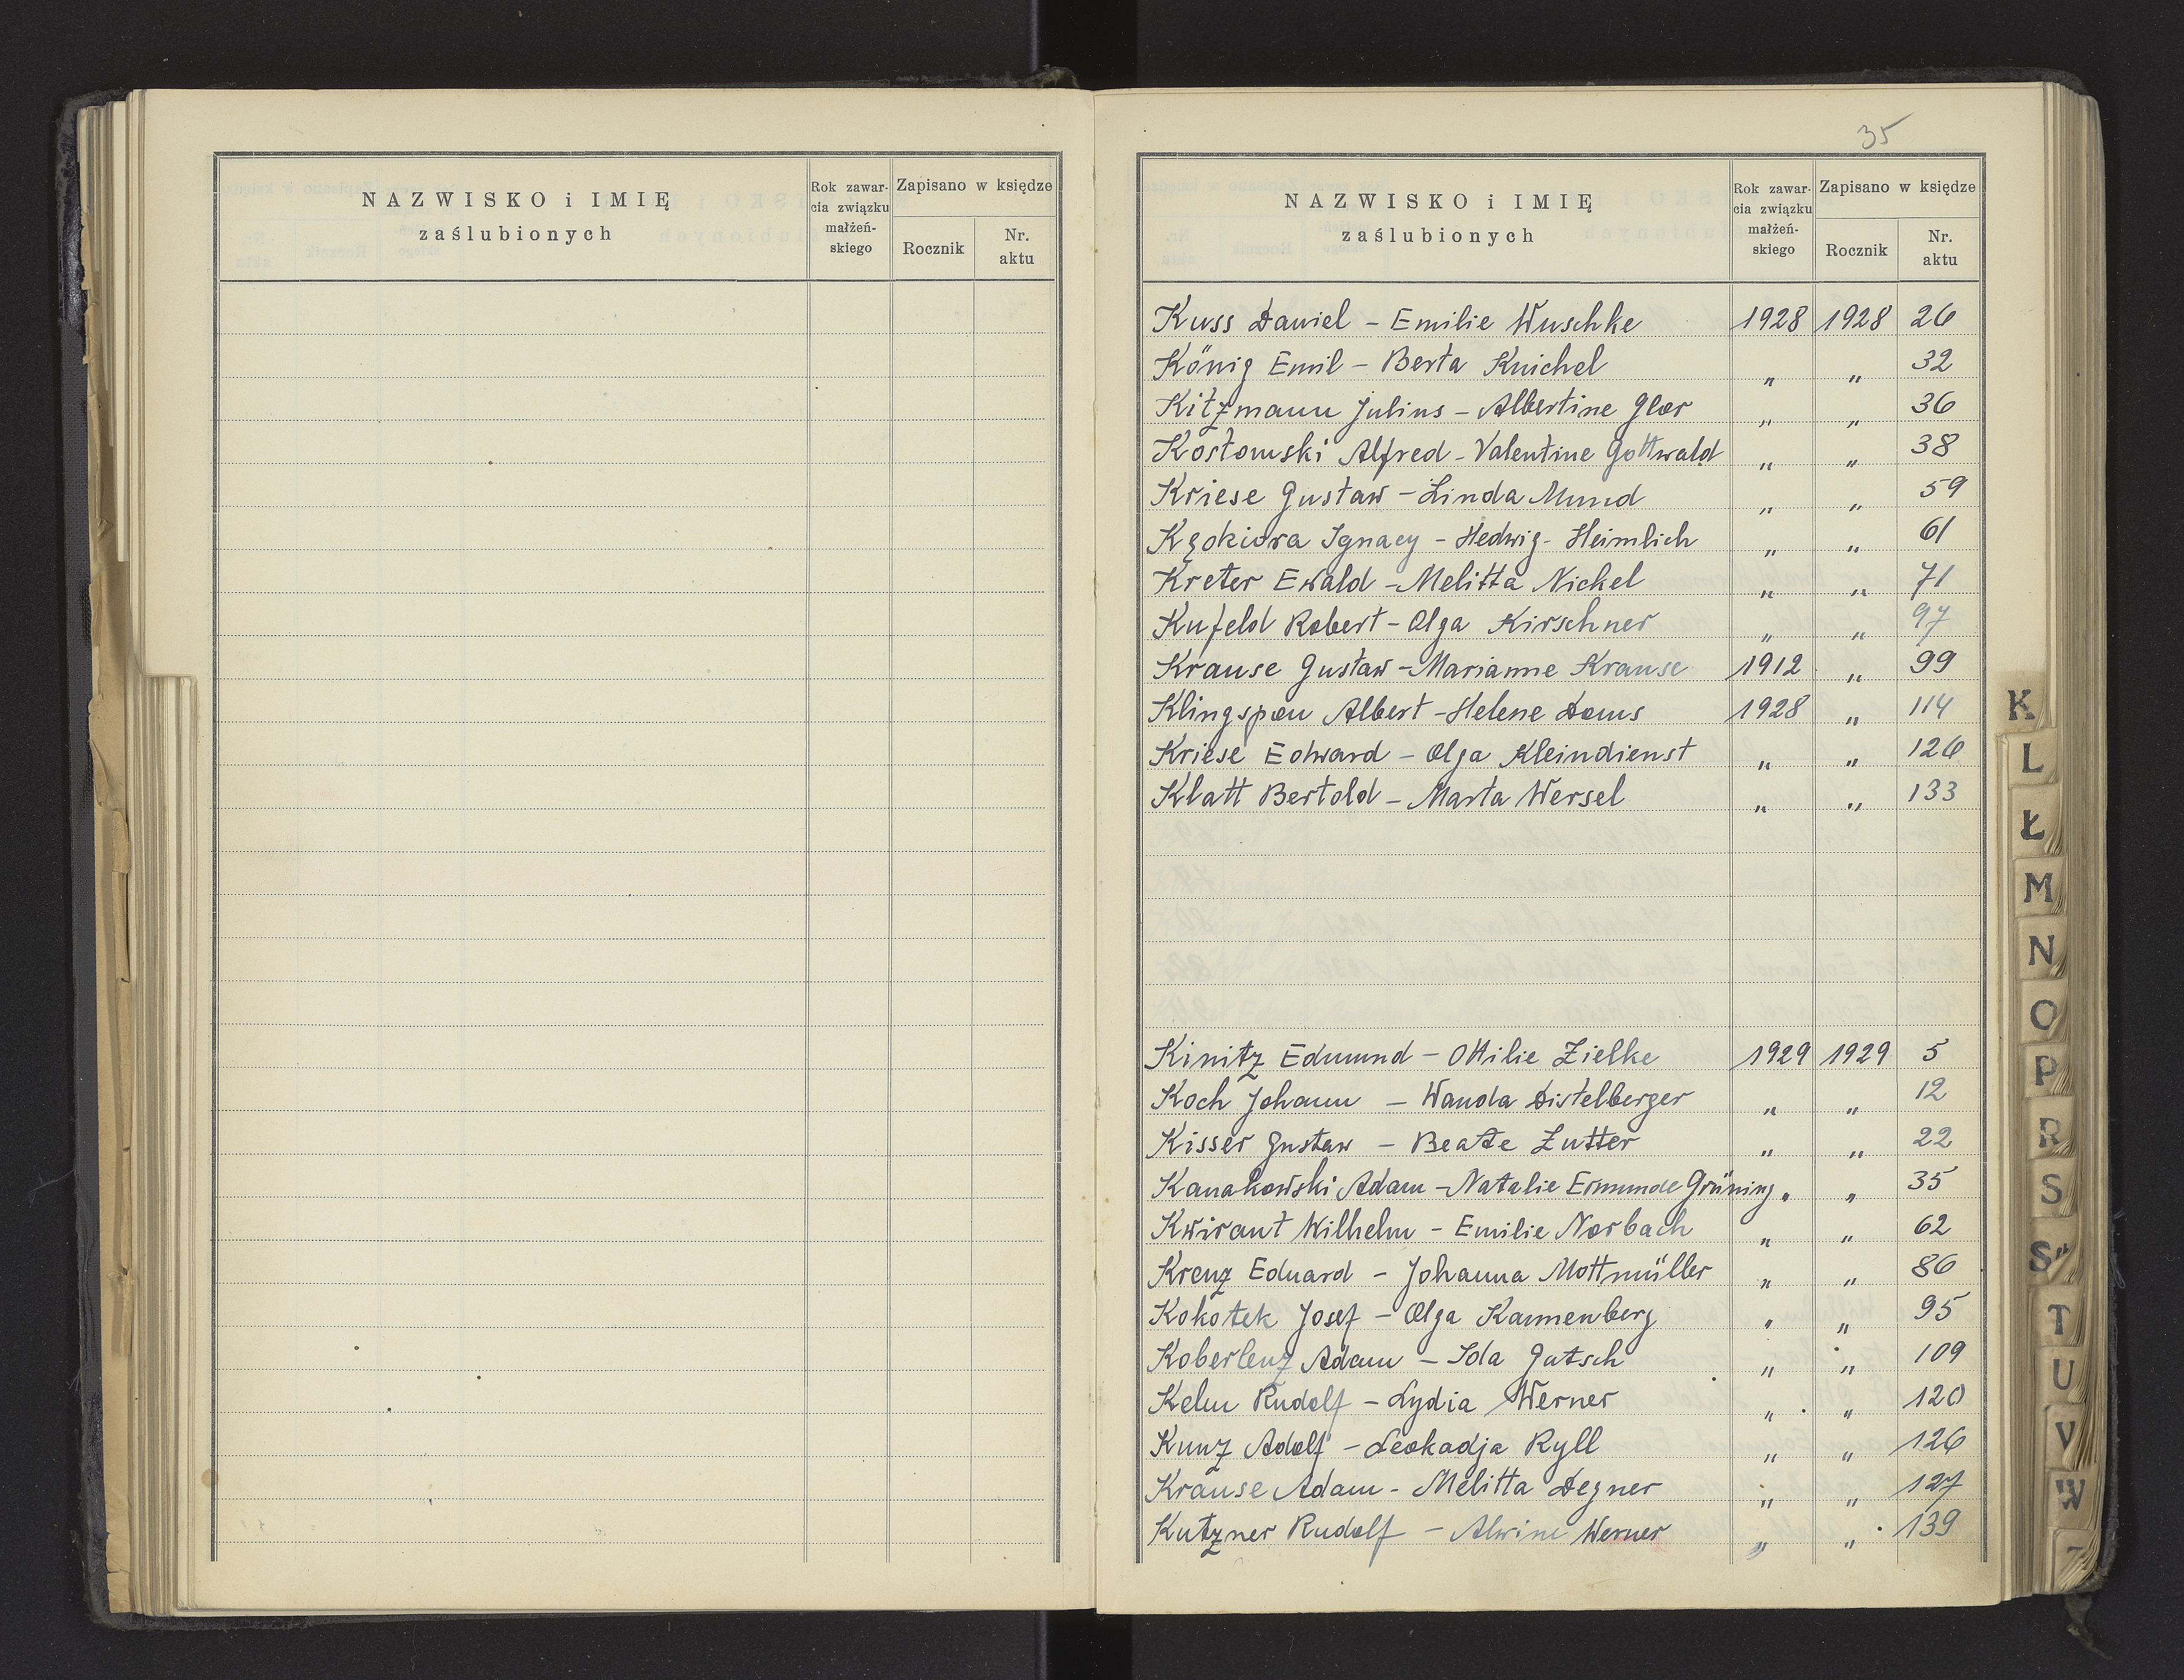 NAZWISKO i IMIĘ
zaślubionych
Rok zawar-
cia związku
małżeń-
skiego
Zapisano w księdze
Rocznik
Nr.
aktu
35
NAZWISKO i IMIĘ
zaślubionych
Rok zawar-
cia związku
małżeń-
skiego
Zapisano w księdze
Rocznik
Nr.
aktu
Kuss Daniel - Emilie Wuschke 1928 1928 26
König Emil - Berta Knichel " " 32
Kitzmann Julius - Albertine Glor " " 36
Kostomski Alfred - Valentine Gottwald " " 38
Kriese Gustaw - Linda Mund " " 59
Ignacy - Hedwig - Heimlich " " 61
Kreter Ewald - Melitta Nickel " " 71
Kufeld Robert - Olga Kirschner " " 97
Krause Gustaw - Marianne Krause 1912 " 99
Klingspon Albert - Helene Doms 1928 " 114
Kriese Edward - Olga Kleindienst " " 126
Klatt Bertold - Marta Wersel " " 133
Kinitz Edmund - Ottilie Zielke 1929 1929 5
Koch Johann - Wanda Distelberger " " 12
Kisser Gustaw - Beate Lutter " " 22
Kanakowski Adam - Natalie Ermunde Grüning " " 35
Kwirant Wilhelm - Emilie Norbach " " 62
Krenz Eduard - Johanna Mottmüller " " 86
Kokotek Josef - Olga Kannenberg " " 95
Koberlenz Adam - Ida Gatsch " " 109
Kelm Rudolf - Lydia Werner " " 120
Kunz Adolf - Leokadja Ryll " " 126
Krause Adam - Melitta Degner " " 127
Kutzner Rudolf - Alwine Werner " " 139
K
L
Ł
M
N
O
P
R
S
Ś
T
U
V
W
Z